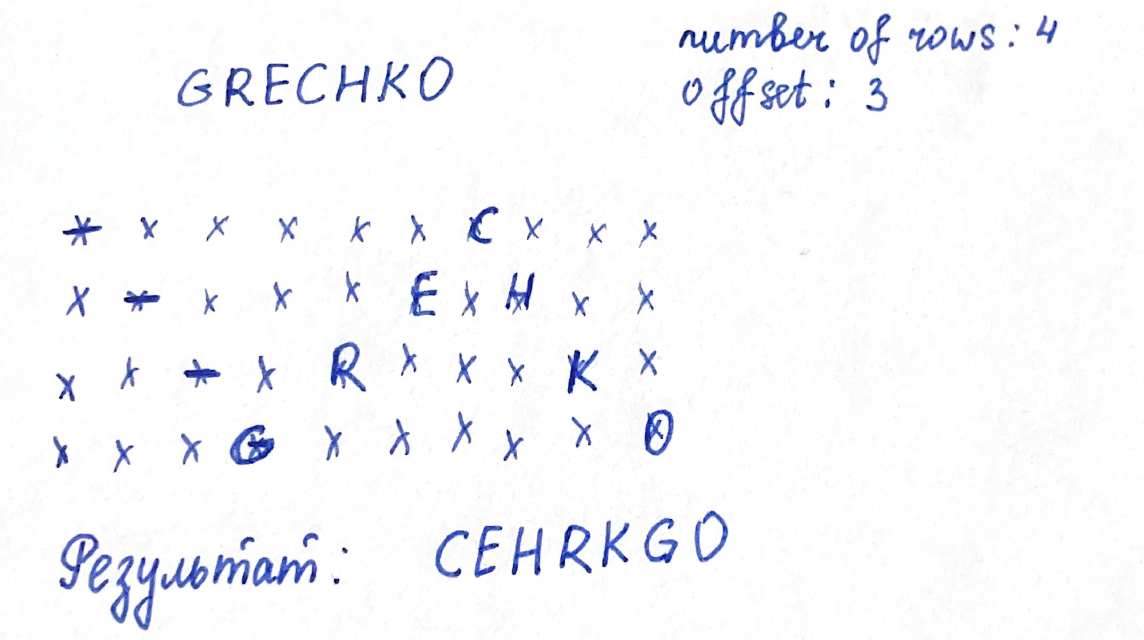 GRECHKO
number of rows: 4
offset: 3
* x x x x x C x x x
x * x x x E x H x x
x x * x R x x x K x
x x x G x x x x x O
Результат: CEHRKGO